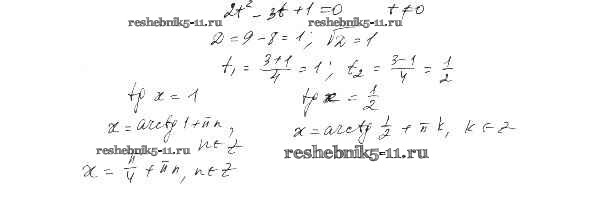 2t² - 3t + 1 = 0 t ≠ 0
reshebnik5-11.ru reshebnik5-11.ru
D = 9 - 8 = 1; √D = 1
t₁ = (3+1)/4 = 1; t₂ = (3-1)/4 = 1/2
tg x = 1 tg x = 1/2
x = arctg 1 + πn, n ∈ Z x = arctg 1/2 + πk, k ∈ Z
reshebnik5-11.ru reshebnik5-11.ru
x = π/4 + πn, n ∈ Z